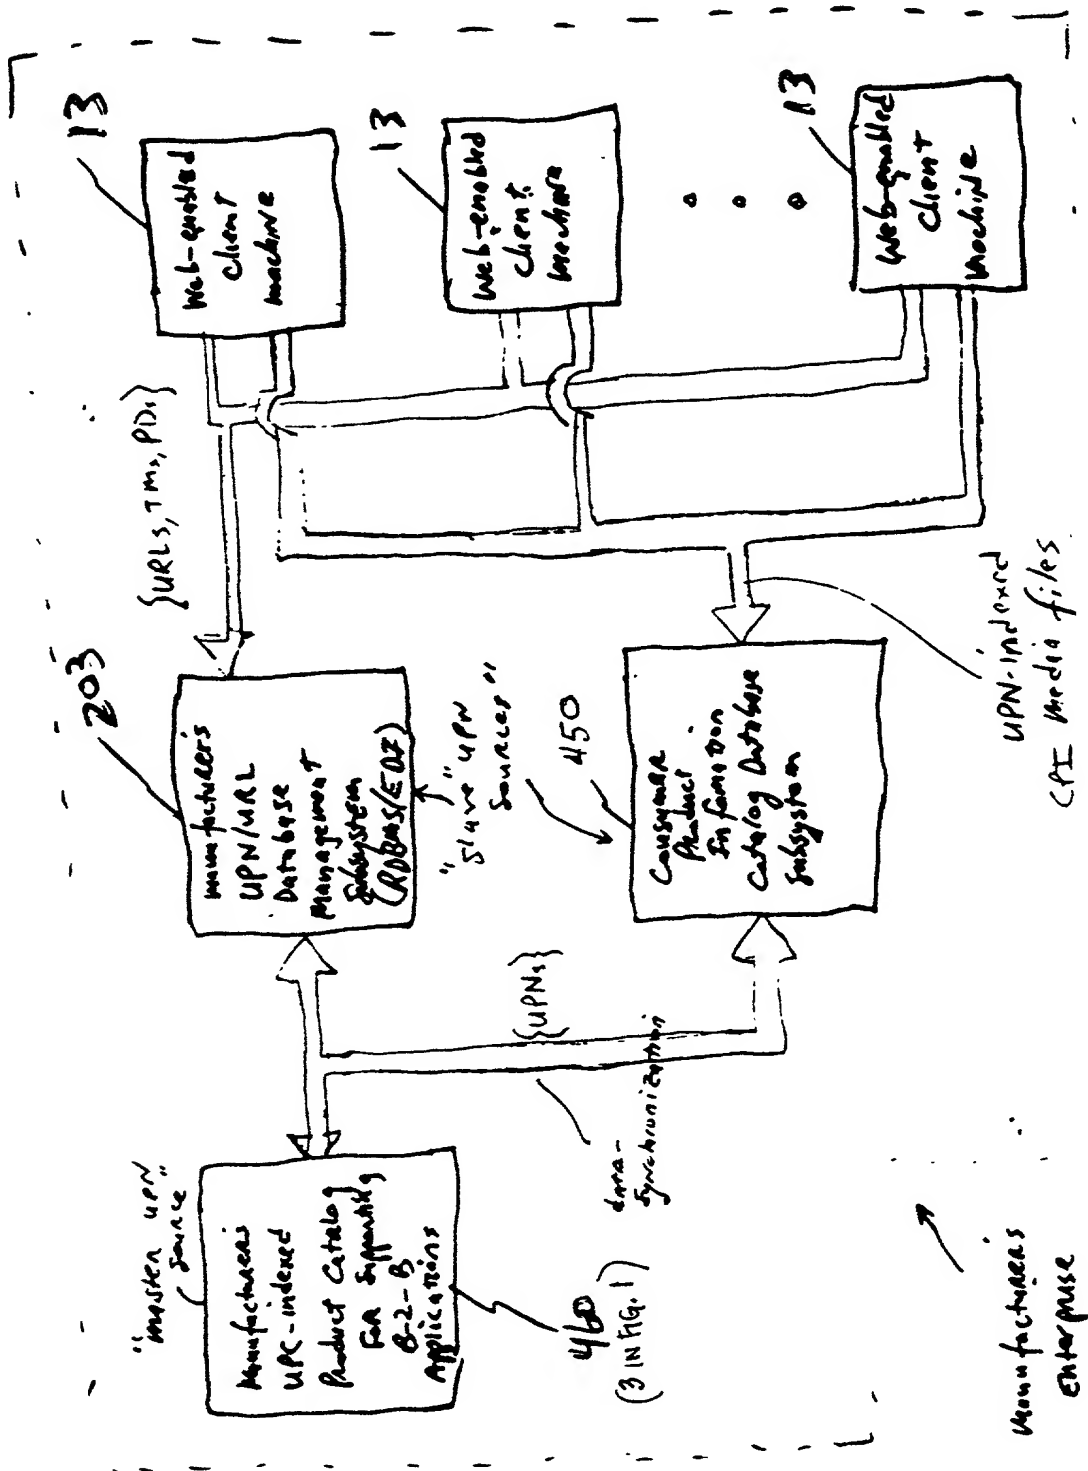 "master UPN"
source
Manufacturers
UPC-indexed
Product Catalog
For Supporting
B-2-B
Applications
460
(3 IN FIG. 1)
data-
synchronization
{UPNs}
203
Manufacturer's
UPN/URL
Database
Management
Subsystem
(RDBMS/EDI)
"Slave" UPN
Sources"
450
Consumer
Product
Information
Catalog Database
Subsystem
{URLs, TMs, PDs}
13
Web-enabled
client
machine
13
Web-enabled
client
machine
13
Web-enabled
client
machine
UPN-indexed
CPI media files
Manufacturers
Enterprise